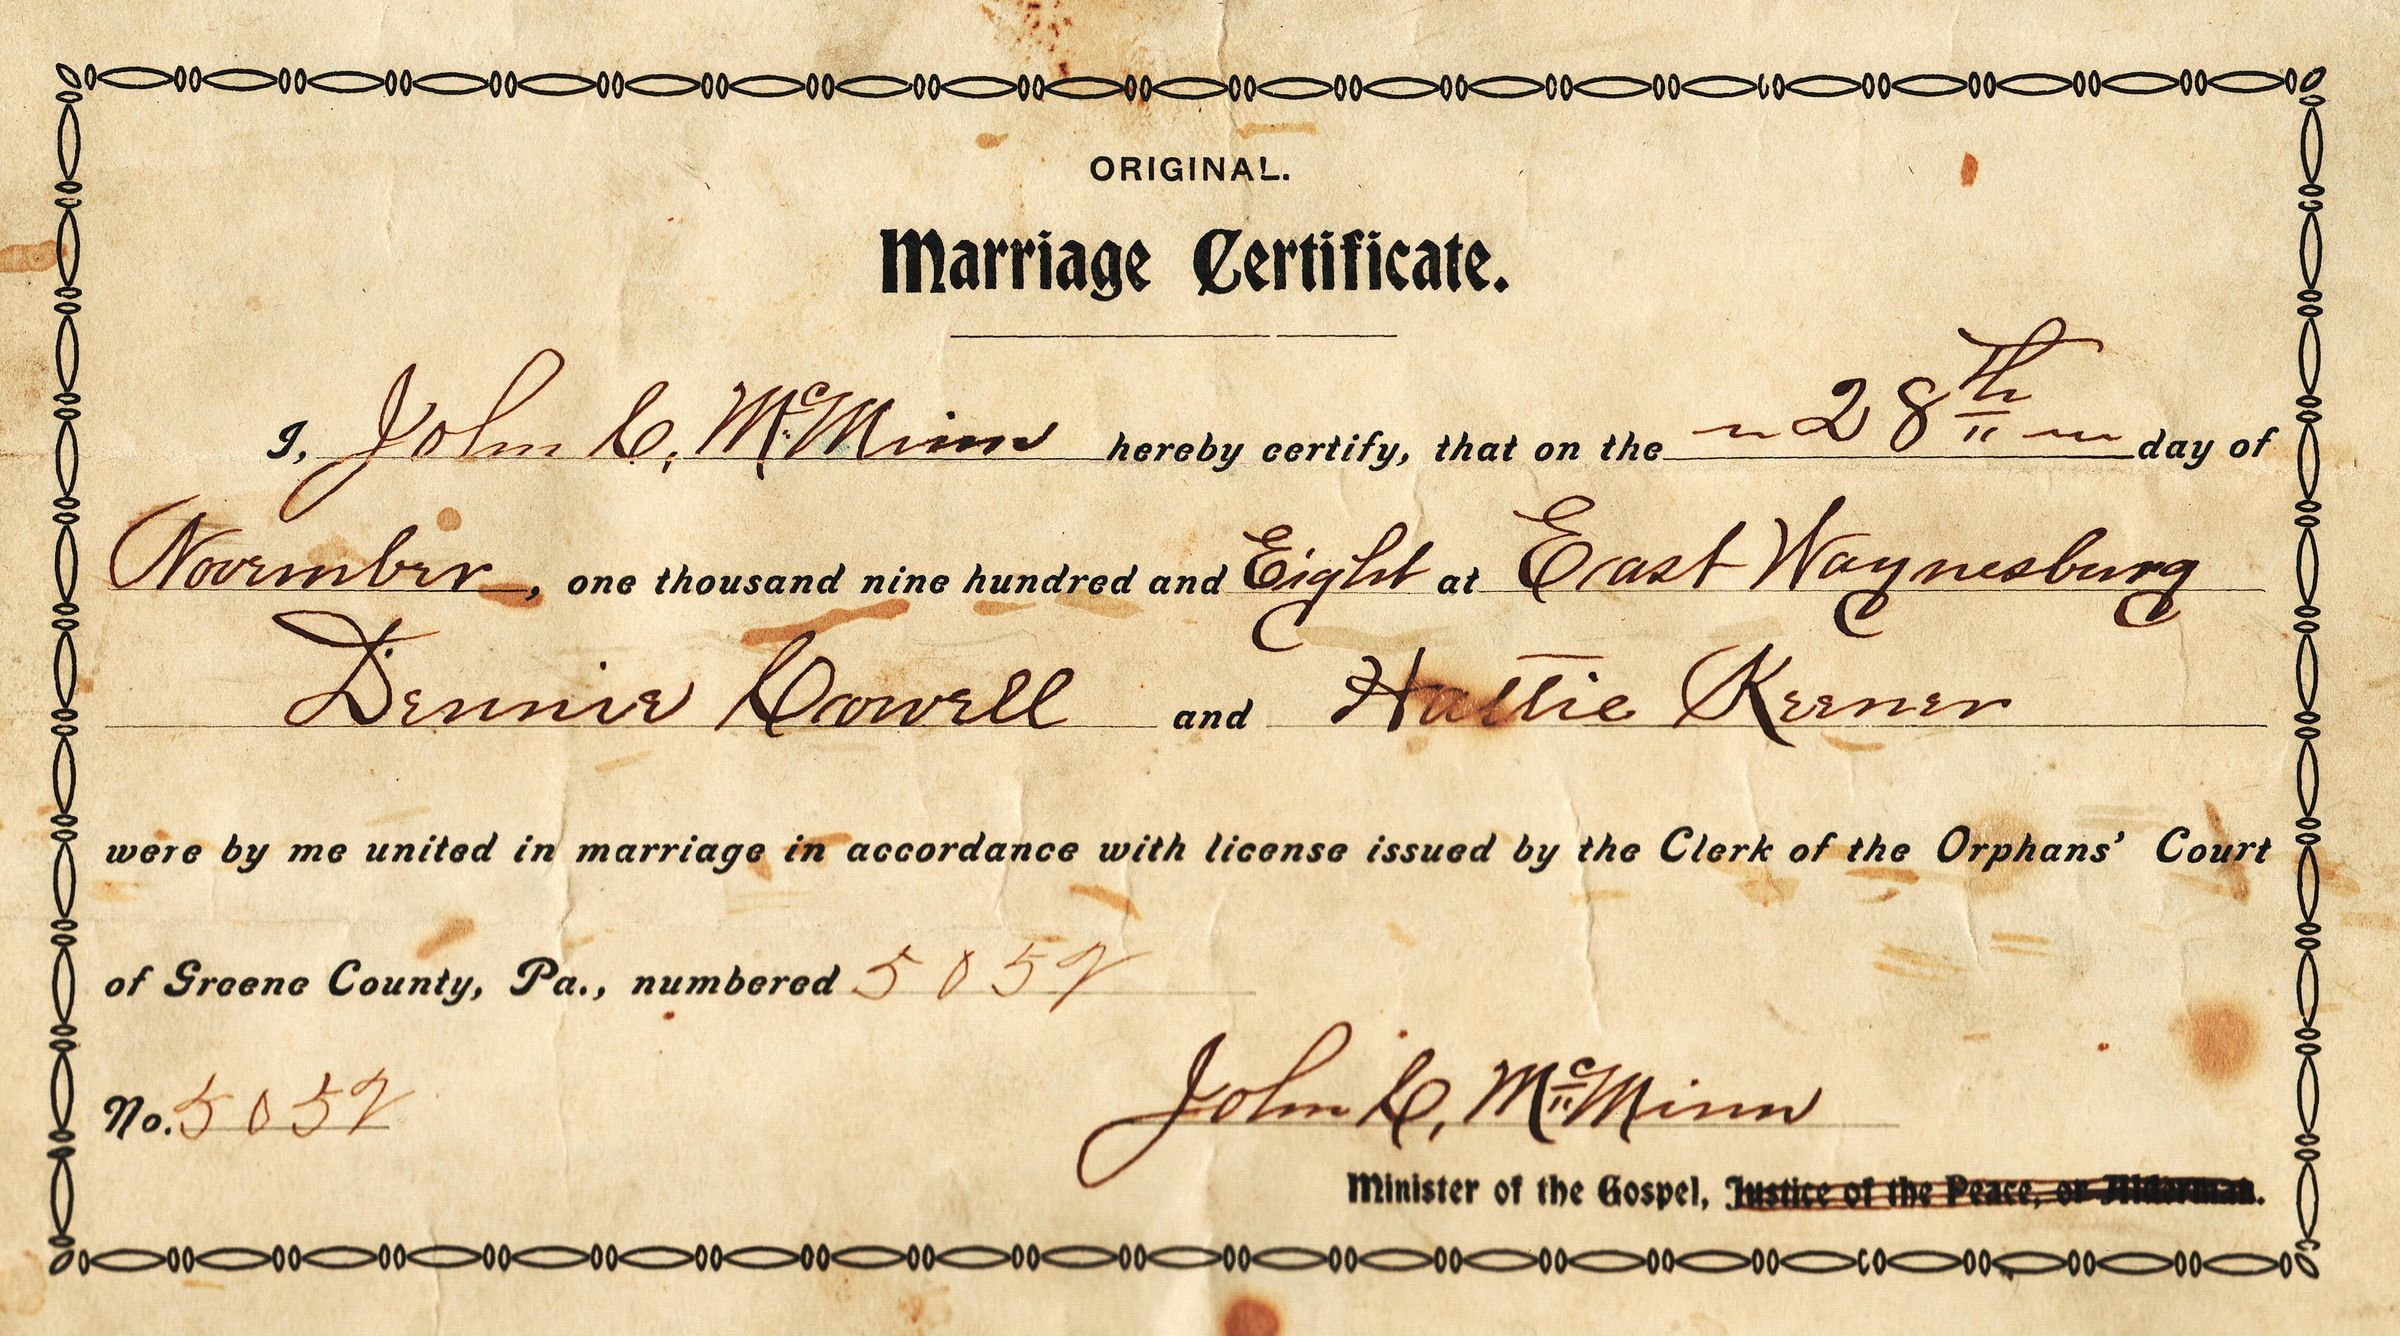 ORIGINAL.
Marriage Certificate.
I, John C. McMinn hereby certify, that on the 28th day of
November, one thousand nine hundred and Eight at East Waynesburg
Dennie Cowell and Hattie Keener
were by me united in marriage in accordance with license issued by the Clerk of the Orphans' Court
of Greene County, Pa., numbered 5052
No. 5052
John C. McMinn
Minister of the Gospel, Justice of the Peace, or Alderman.